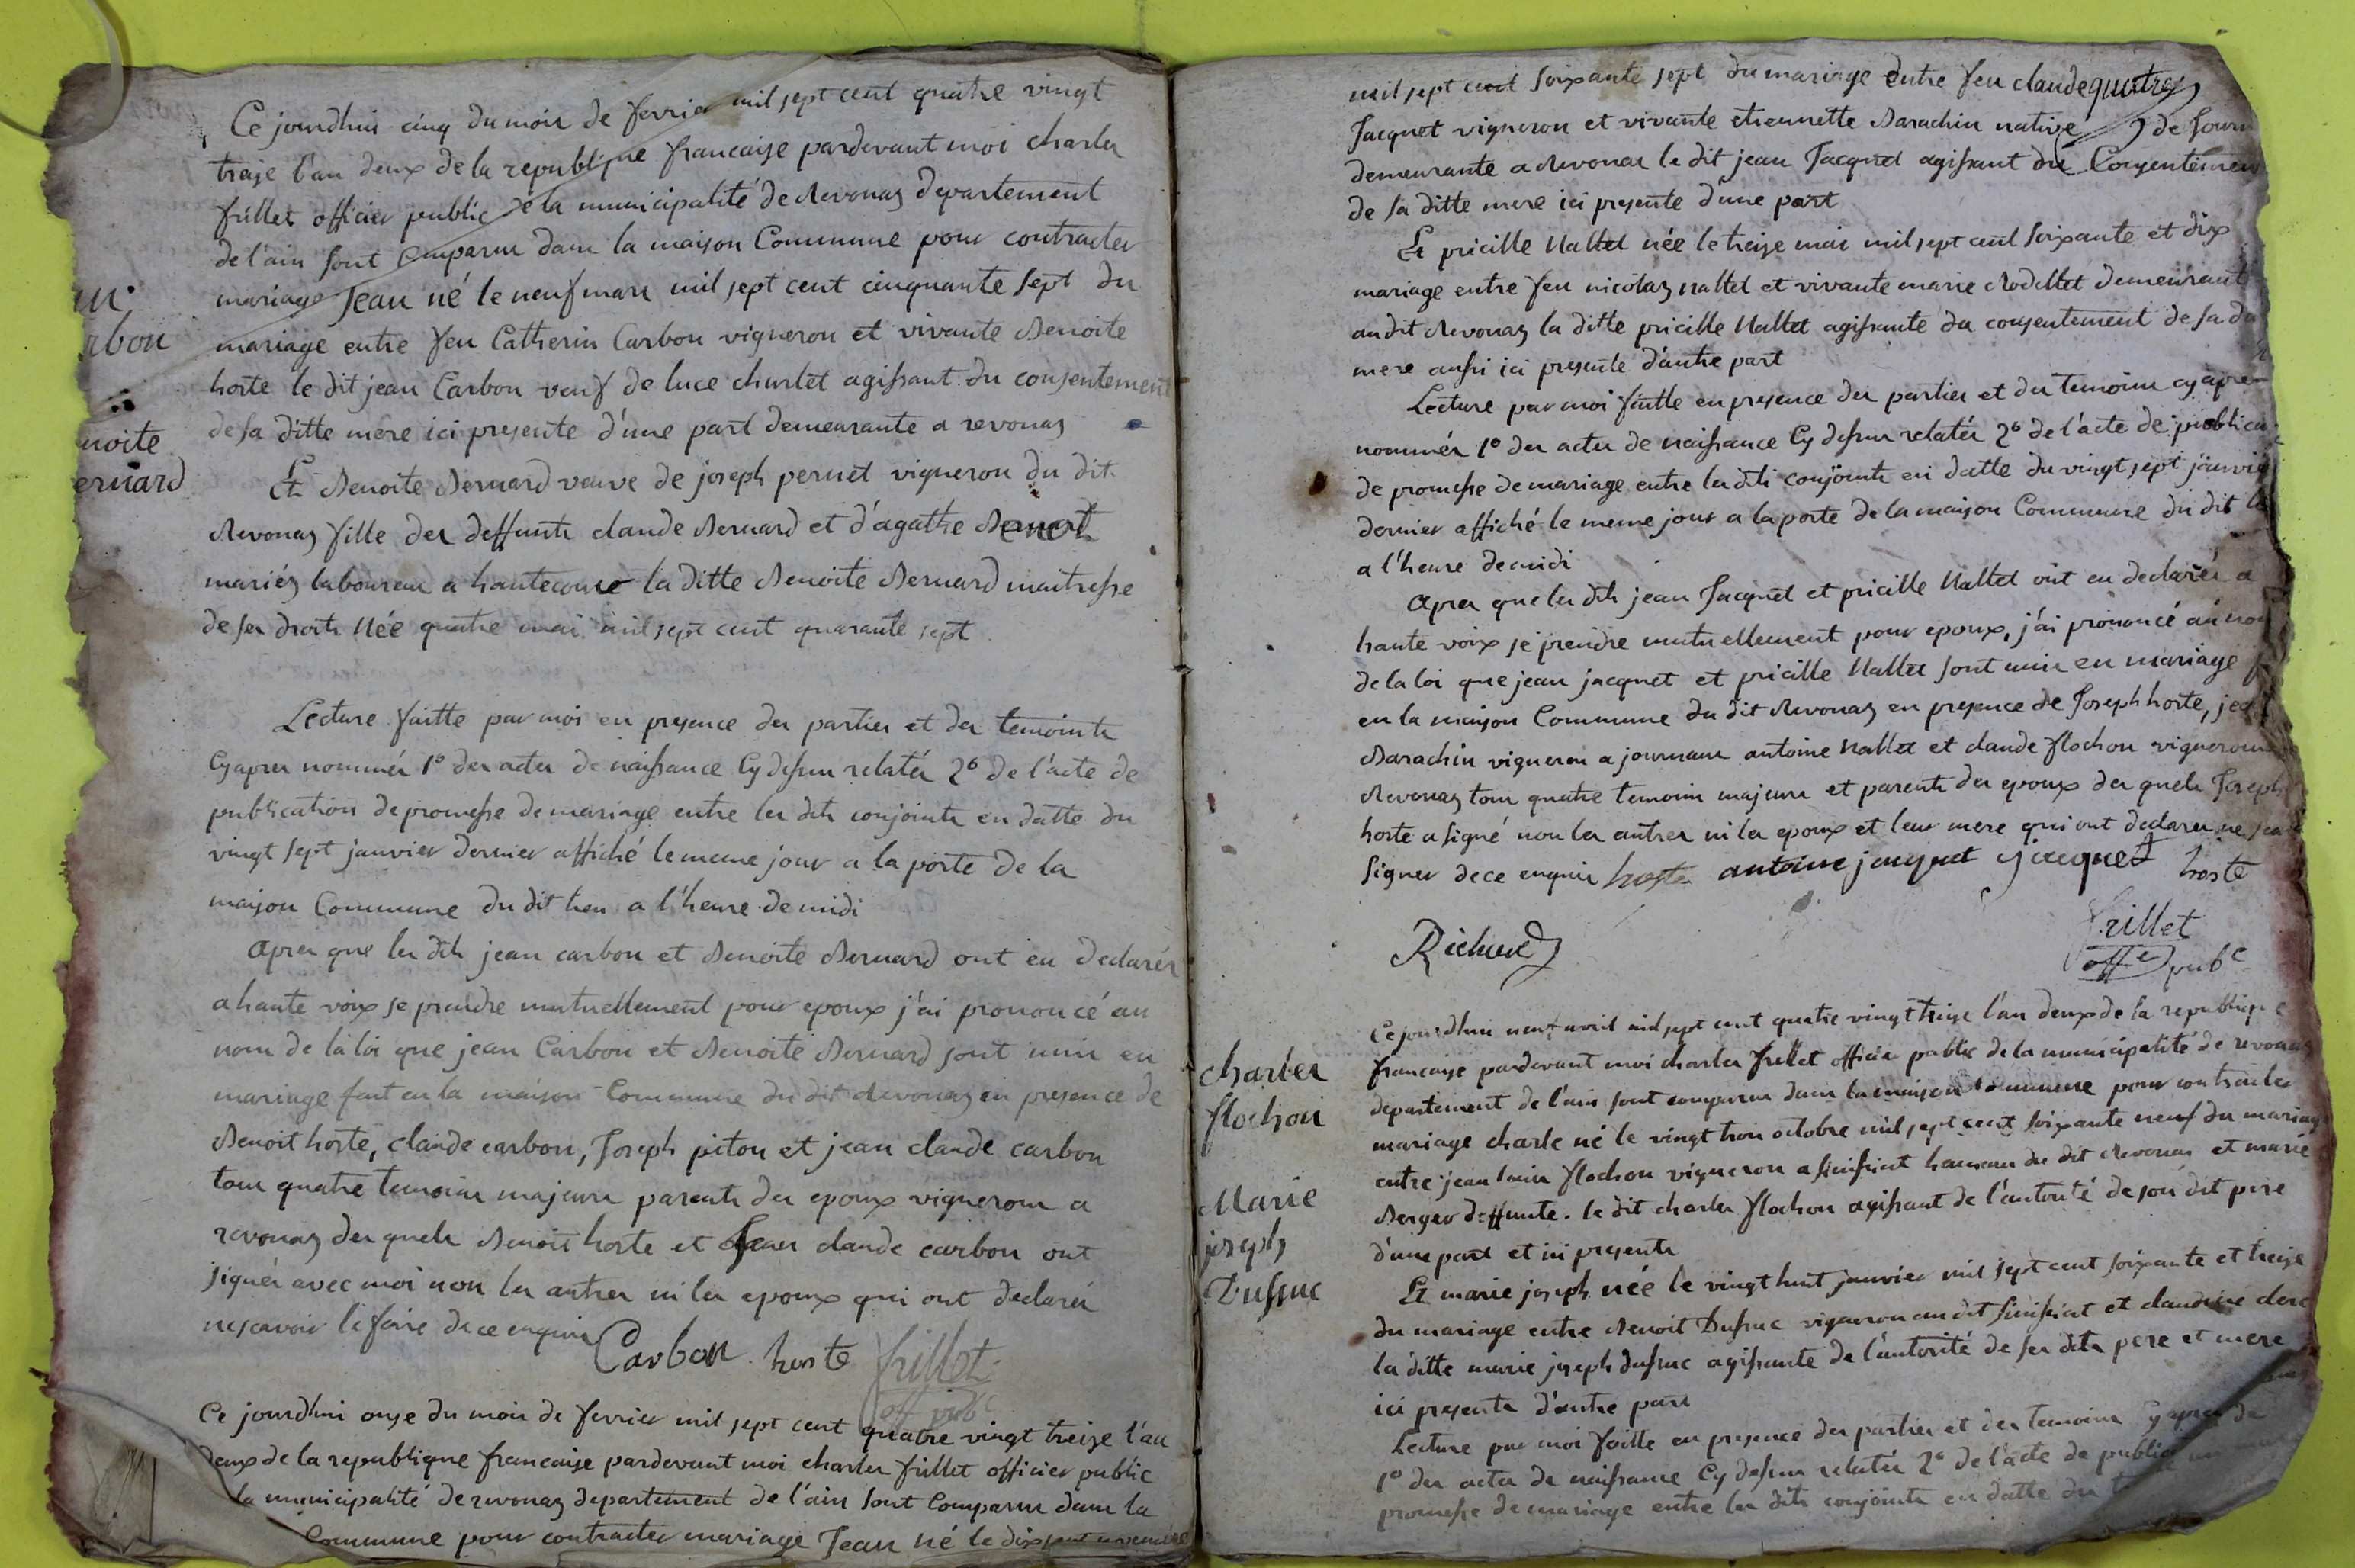 Ce jourdhui cinq du mois de fevrier mil sept cent quatre vingt
treize l'an deux de la republique francaise pardevant moi charles
frillet officier public de la municipalité de Revonas departement
de l'ain sont comparus dans la maison Commune pour contracter
mariage Jean né le neuf mars mil sept cent cinquante sept du
mariage entre feu Catherin Carbon vigneron et vivante Benoite
horte le dit jean Carbon veuf de luce churlet agissant du consentement
de sa ditte mere ici presente d'une part demeurante a revonas
noite
ernard
Et Benoite Bernard veuve de joseph pernet vigneron du dit
Revonas fille des deffunts claude Bernard et d'agathe
mariés laboureur a hautecour la ditte Benoite Bernard maitresse
de ses droits Née quatre mai mil sept cent quarante sept
Lecture faitte par moi en presence des parties et des temoints
Cy apres nommés 1° des actes de naissance Cy dessus relatés 2° de l'acte de
publication de promesse de mariage entre les dits conjoints en datte du
vingt sept janvier dernier affiché le meme jour a la porte de la
maison Commune du dit lieu a l'heure de midi
apres que les dits jean carbon et Benoite Bernard ont eu declarés
a haute voix se prendre mutuellement pour epoux j'ai prononcé au
nom de la loi que jean Carbon et Benoite Bernard sont unis en
mariage fait en la maison Commune du dit Revonas en presence de
Benoit horte, claude carbon, Joseph piton et jean claude carbon
tous quatre temoins majeurs parents des epoux vignerons a
revonas des quels Benoit horte et Jean claude carbon ont
signés avec moi non les autres ni les epoux qui ont declarés
ne scavoir le faire de ce enquis
Carbon horte frillet
off pub^c
Ce jourdhui onze du mois de fevrier mil sept cent quatre vingt treize l'an
deux de la republique francaise pardevant moi charles frillet officier public
la municipalité de revonas departement de l'ain sont Comparus dans la
Commune pour contracter mariage Jean né le dix sept
mil sept cent soixante sept du mariage entre feu claude
Jacquet vigneron et vivante etiennette Barachin native de
demeurante a Revonas le dit jean Jacquet agissant du Consentement
de sa ditte mere ici presente d'une part
Et pricille Nallet née le treize mai mil sept cent soixante et dix
mariage entre feu nicolas nallet et vivante marie Rodellet demeurant
au dit Revonas la ditte pricille Nallet agissante du consentement de sa
mere aussi ici presente d'autre part
Lecture par moi faitte en presence des parties et des temoins cy apres
nommés 1° des actes de naissance Cy dessus relatés 2° de l'acte de publica
de promesse de mariage entre les dits conjoints en datte du vingt sept janvier
dernier affiché le meme jour a la porte de la maison Commune du dit
a l'heure de midi
apres que les dits jean Jacquet et pricille Nallet ont eu declarés a
haute voix se prendre mutuellement pour epoux, j'ai prononcé au nom
de la loi que jean jacquet et pricille Nallet sont unis en mariage
en la maison Commune du dit Revonas en presence de Joseph horte,
Barachin vigneron a journans antoine Nallet et claude flochon vignerons
Revonas tous quatre temoins majeurs et parents des epoux des quels Joseph
horte a signé non les autres ni les epoux et leur mere qui ont declarés ne
signer de ce enquis horte antoine jacquet jacquet horte
frillet
off^e pub^c
charles
flochon
Marie
joseph
Dufsuc
Ce jourdhui neuf avril mil sept cent quatre vingt treize l'an deux de la republique
francaise pardevant moi charles frillet officier public de la municipalité de revonas
departement de l'ain sont comparus dans la maison Commune pour contracter
mariage charle né le vingt trois octobre mil sept cent soixante neuf du mariage
entre jean louis flochon vigneron a hameau du dit Revonas et marie
Berger deffunte. le dit charles flochon agissant de l'autorité de son dit pere
d'une part et ici presente
Et marie joseph née le vingt huit janvier mil sept cent soixante et treize
du mariage entre Benoit Dufsuc vigneron au dit et claudine clerc
la ditte marie joseph dufsuc agissante de l'autorité de ses dits pere et mere
ici presents d'autre part
Lecture par moi faitte en presence des parties et des temoins Cy apres
1° des actes de naissance Cy dessus relatés 2° de l'acte de public
promesse de mariage entre les dits conjoints en datte du